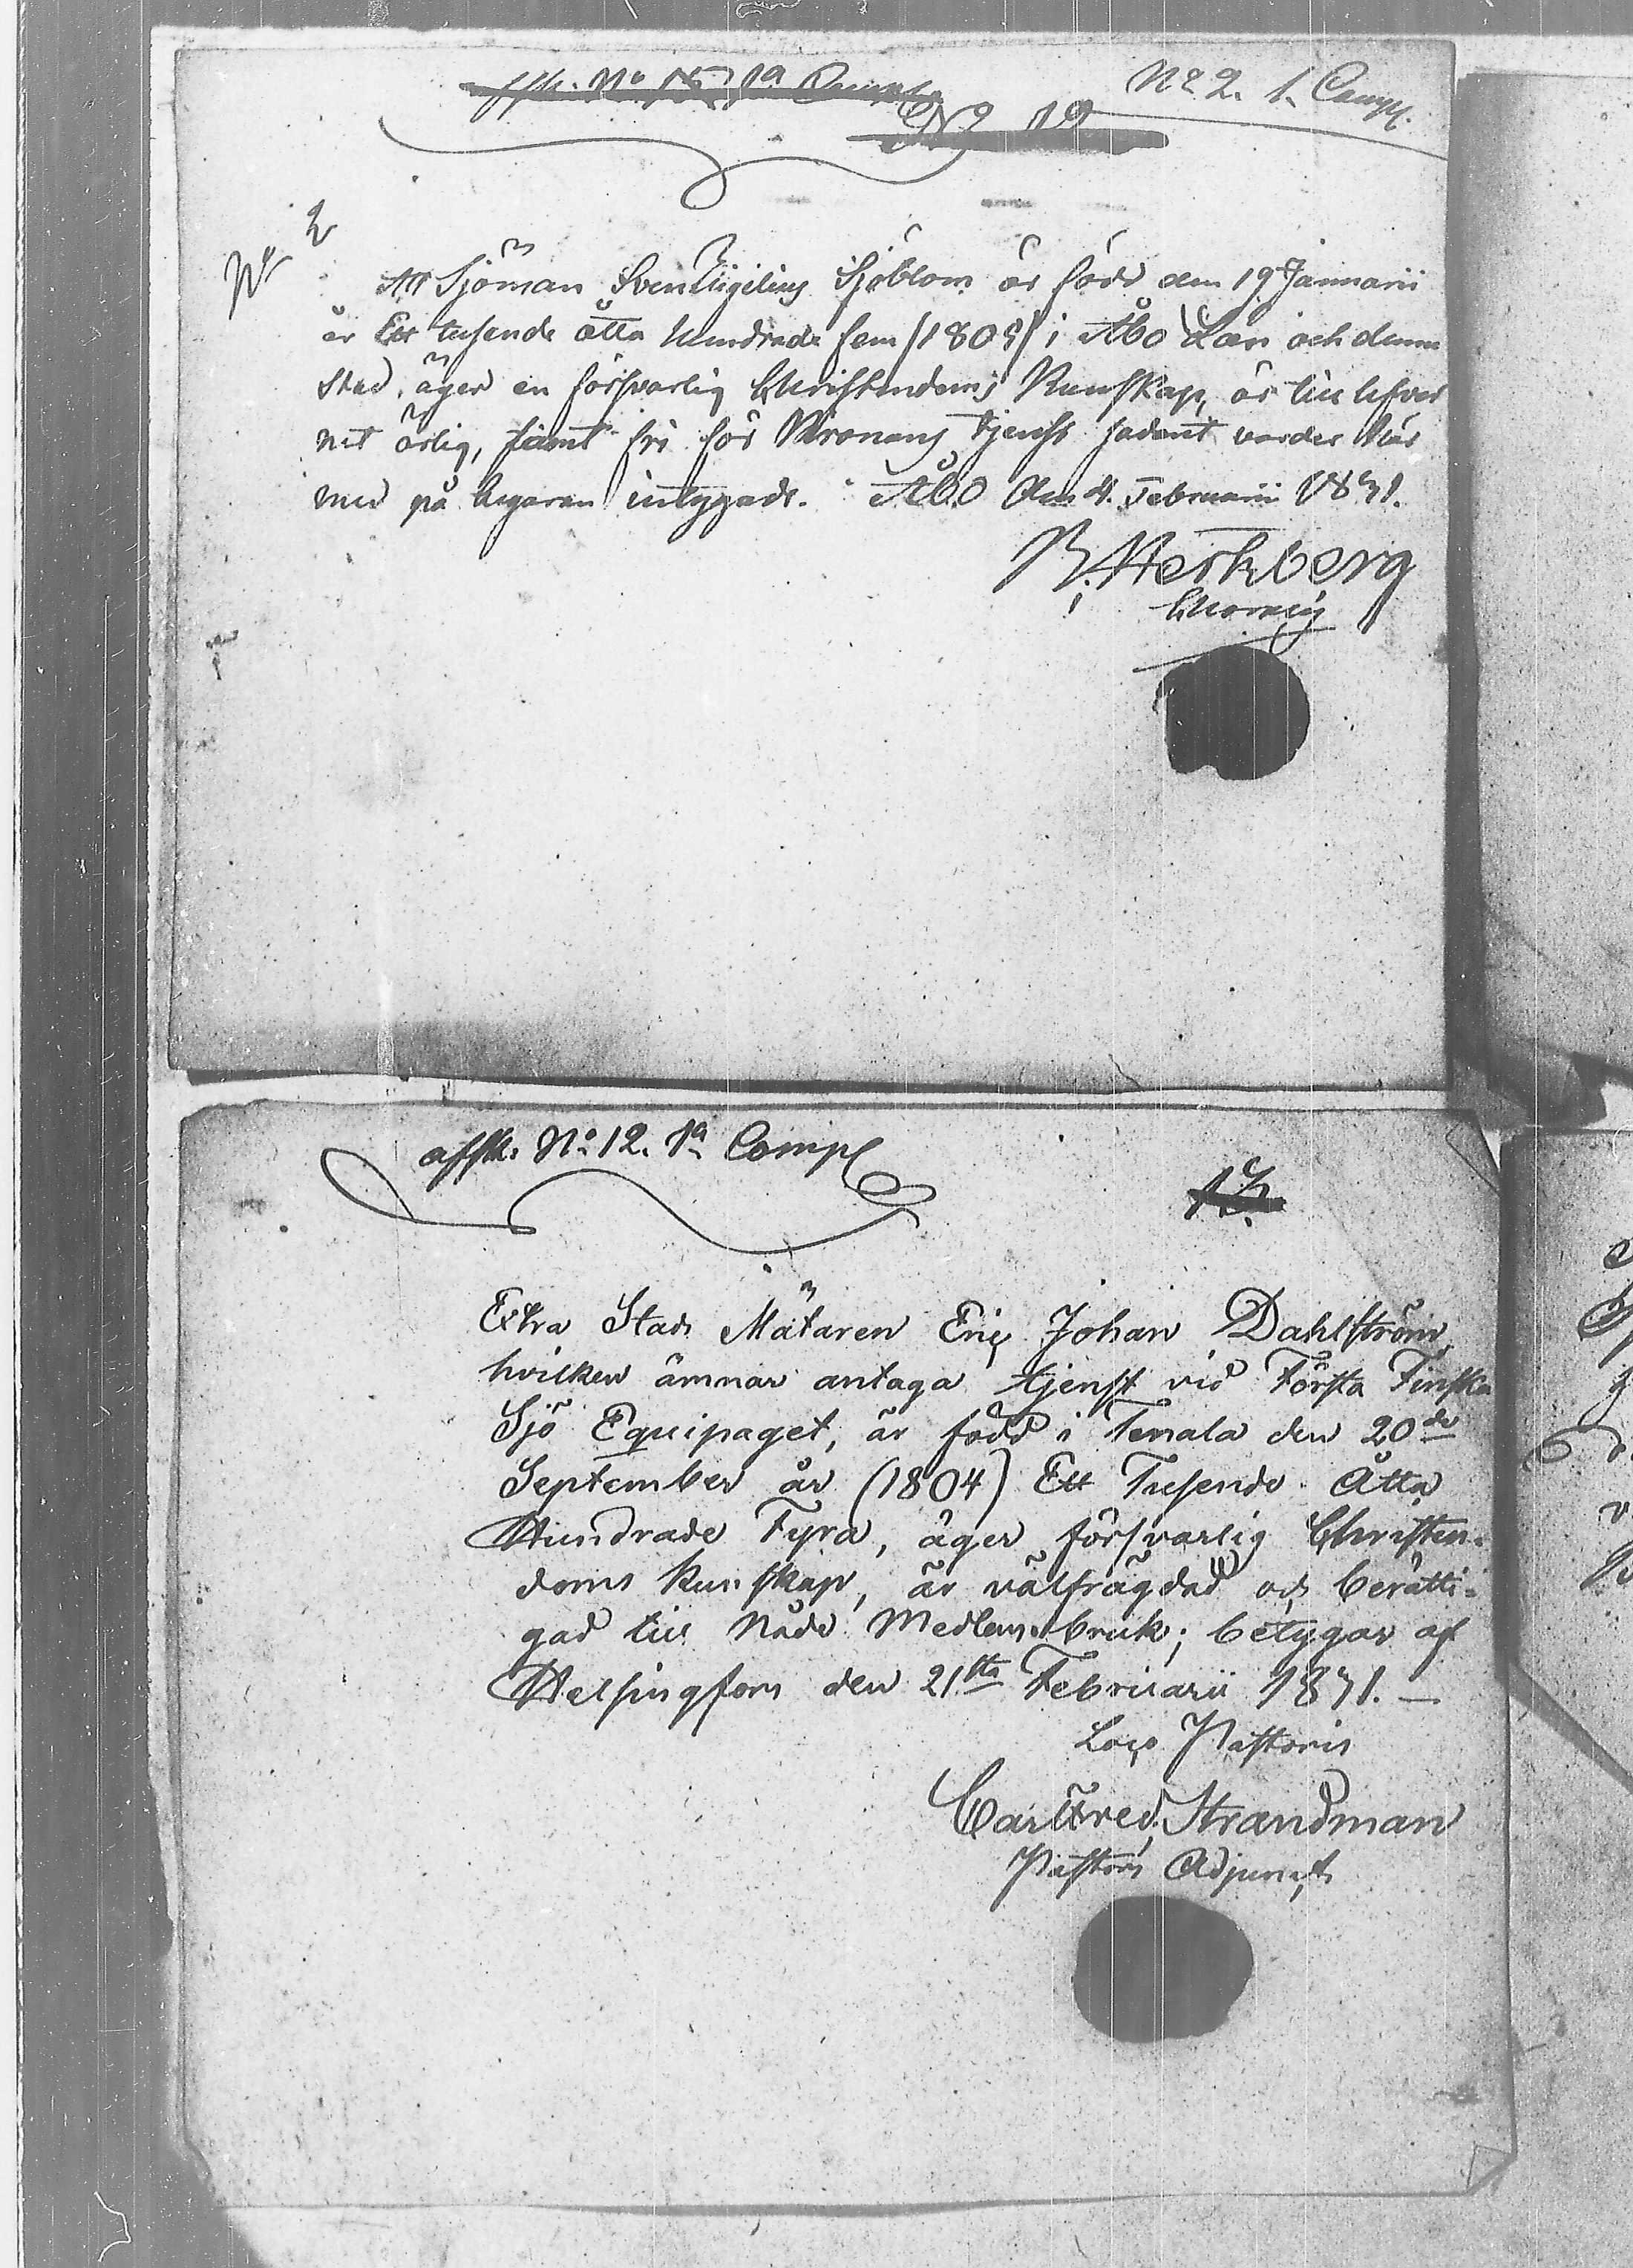 affsk. No 15 1a Comp.
No 2. 1. Comp.
No 12
No 2
Att Sjöman Sven Sjöblom är född den 19 Januarii
år Ett tusende åtta hundrade fem (1805) i Åbo Län och denna
stad, äger en försvarlig Christendoms Kunskap, är till lefver
net ärlig, samt fri för Kronans tjenst sådant varder här
med på begäran intygade. Åbo den 4. Februarii 1831.
Herkberg
affsk. No 12. 1a Comp
12.
Extra Stads Mätaren Eric Johan Dahlström,
hvilken ämnar antaga tjenst vid Första Finska
Sjö Equipaget, är född i Tenala den 20de
September år (1804) Ett Tusende Åtta
Hundrade Fyra, äger försvarlig Christen-
doms kunskap, är välfrägdad och berätti-
gad till Nåde Medlens bruk; betygar af
Helsingfors den 21sta Februarii 1831. —
Loco Pastoris
Carl Fred. Strandman
Pastors Adjunct